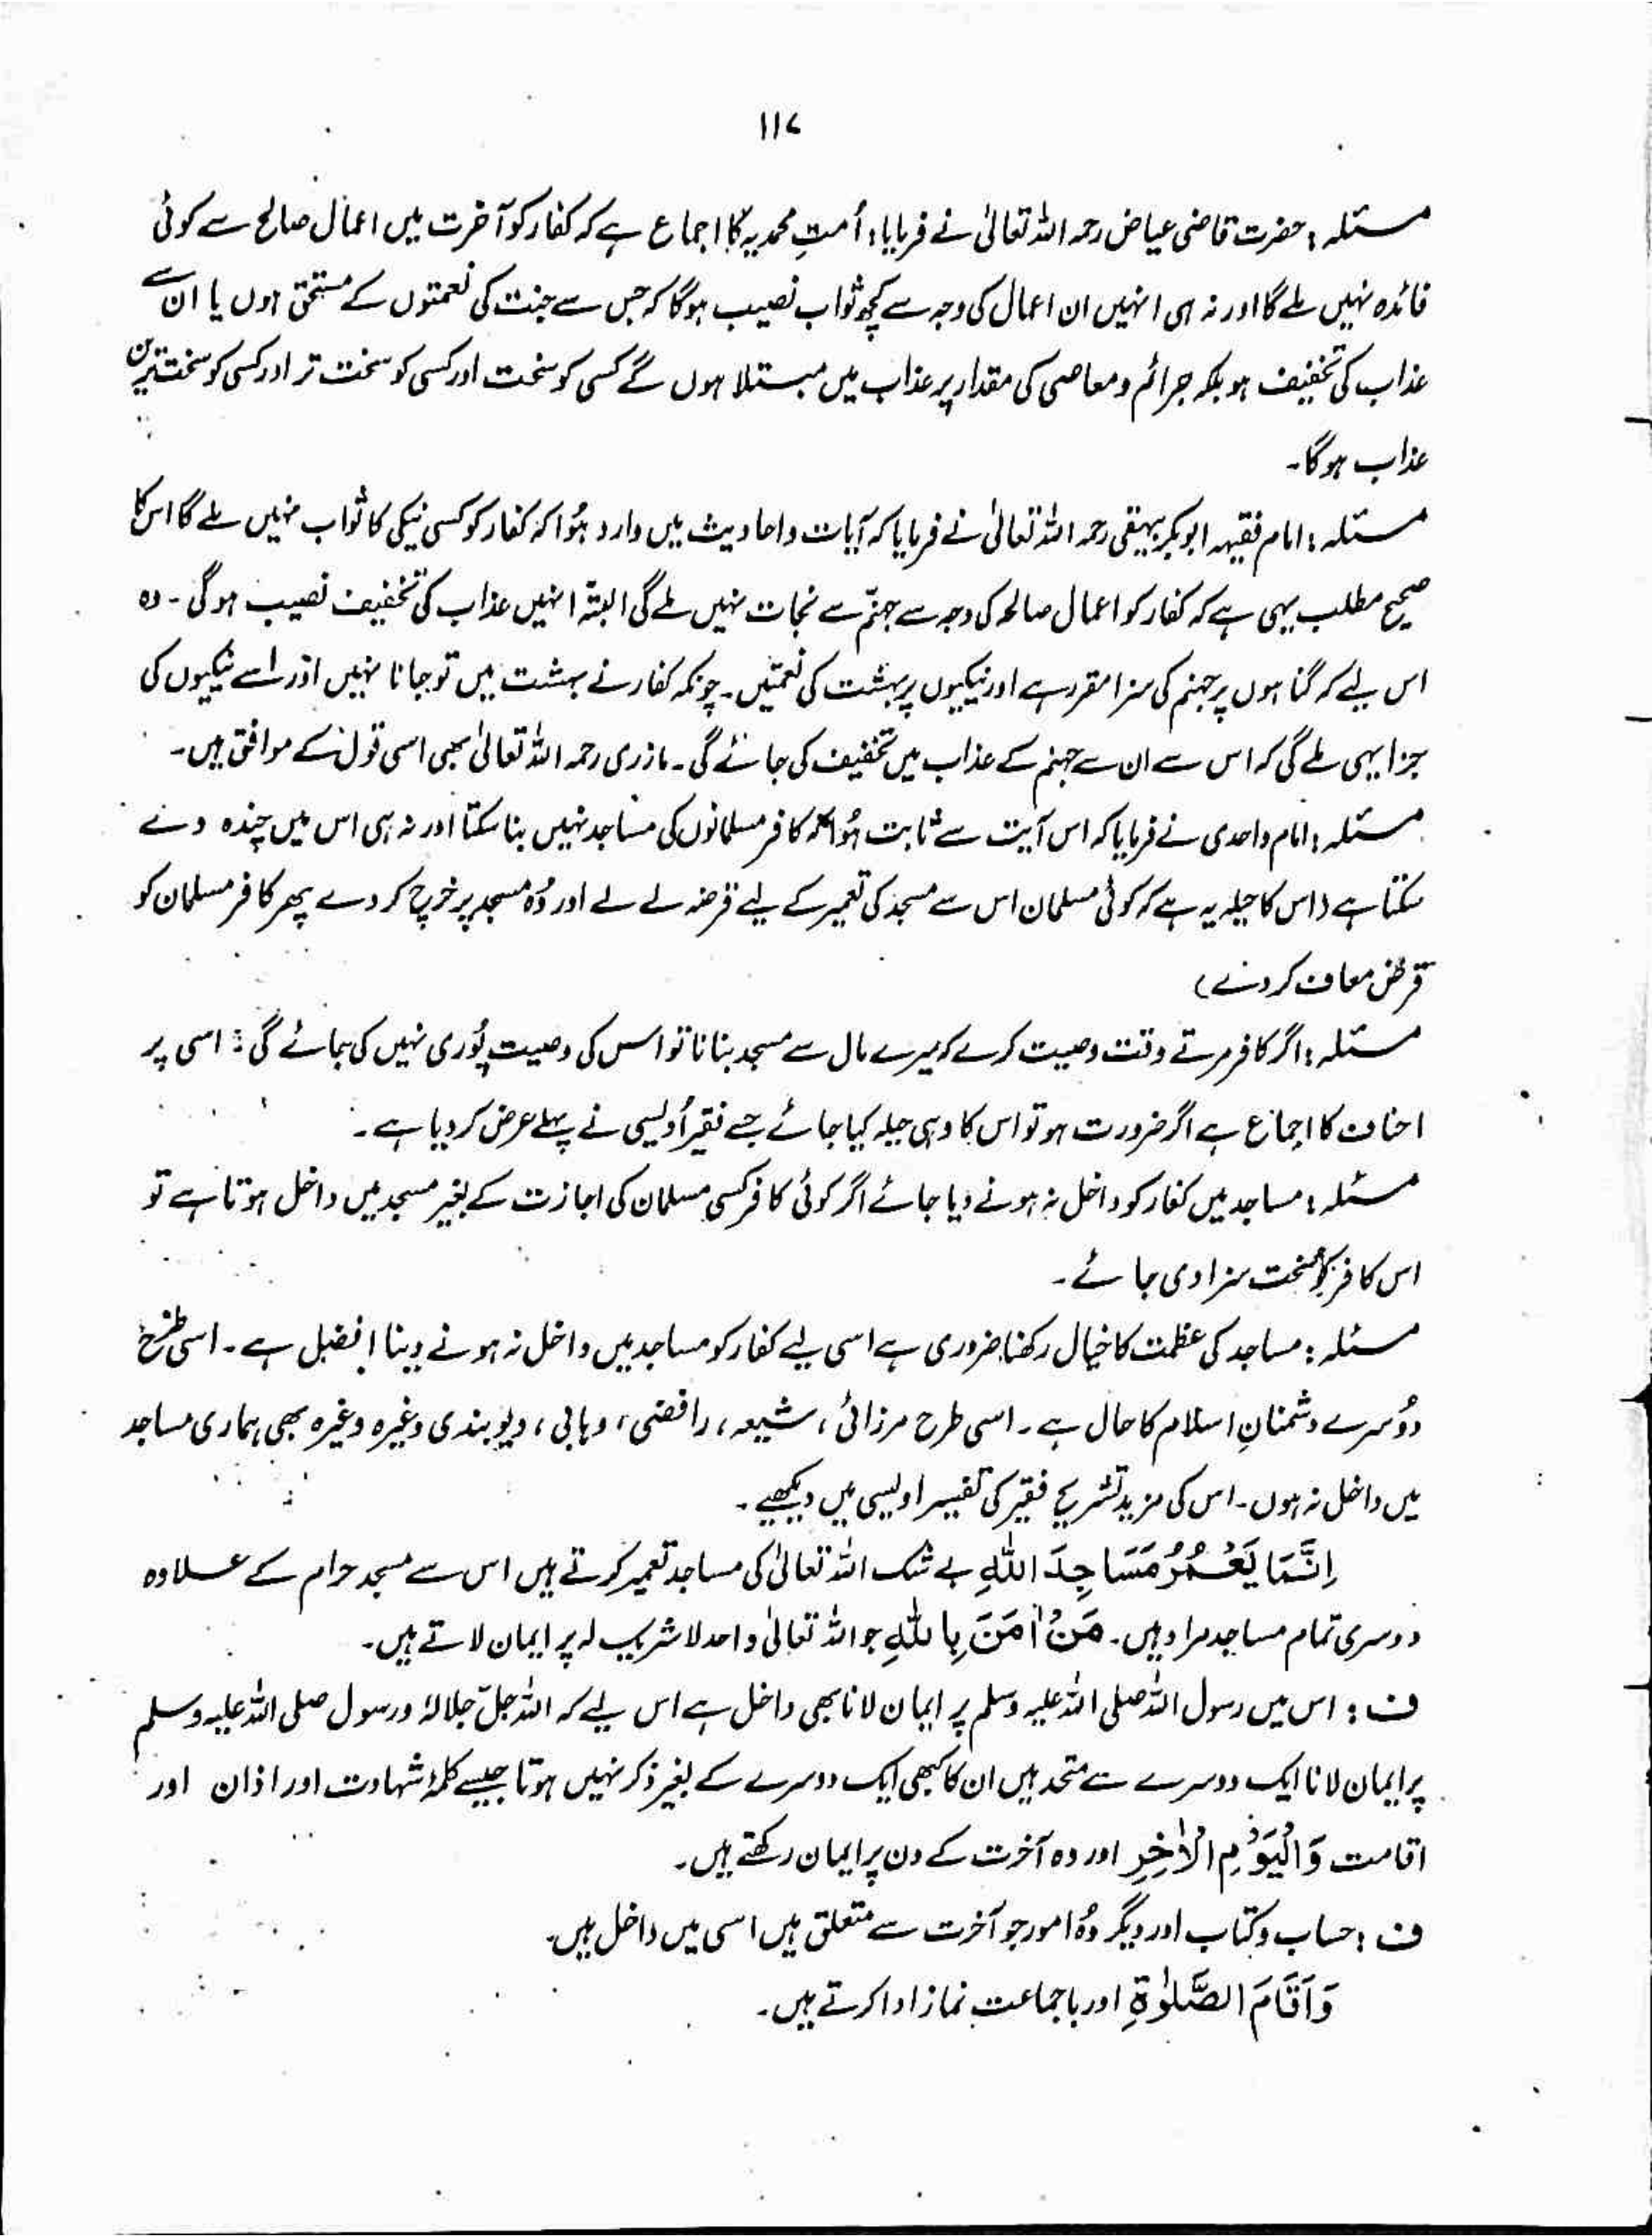 ۱۱۷
مسئلہ : حضرت قاضی عیاض رحمہ اللہ تعالیٰ نے فرمایا : اُمتِ محمدیہ کا اجماع ہے کہ کفار کو آخرت میں اعمال صالح سے کوئی
فائدہ نہیں ملے گا اور نہ ہی انہیں ان اعمال کی وجہ سے کچھ ثواب نصیب ہوگا کہ جس سے جنت کی نعمتوں کے مستحق ہوں یا ان سے
عذاب کی تخفیف ہو بلکہ جرائم و معاصی کی مقدار پر عذاب میں مبتلا ہوں گے کسی کو سخت اور کسی کو سخت تر اور کسی کو سخت ترین
عذاب ہوگا۔
مسئلہ : امام فقیہہ ابوبکر بیہقی رحمہ اللہ تعالیٰ نے فرمایا کہ آیات و احادیث میں وارد ہُوا کہ کفار کو کسی نیکی کا ثواب نہیں ملے گا اس کا
صحیح مطلب یہی ہے کہ کفار کو اعمال صالحہ کی وجہ سے جہنّم سے نجات نہیں ملے گی البتّہ انہیں عذاب کی تخفیف نصیب ہوگی ۔ وہ
اس لیے کہ گناہوں پر جہنم کی سزا مقرر ہے اور نیکیوں پر بہشت کی نعمتیں۔ چونکہ کفار نے بہشت میں تو جانا نہیں اور اسے نیکیوں کی
جزا یہی ملے گی کہ اس سے ان سے جہنم کے عذاب میں تخفیف کی جائے گی۔ مازری رحمہ اللہ تعالیٰ بھی اسی قول کے موافق ہیں۔
مسئلہ : امام واحدی نے فرمایا کہ اس آیت سے ثابت ہُوا کہ کافر مسلمانوں کی مساجد نہیں بنا سکتا اور نہ ہی اس میں چندہ دے
سکتا ہے (اس کا حیلہ یہ ہے کہ کوئی مسلمان اس سے مسجد کی تعمیر کے لیے قرضہ لے لے اور وُہ مسجد پر خرچ کر دے پھر کافر مسلمان کو
قرض معاف کر دے)
مسئلہ : اگر کافر مرتے وقت وصیت کرے کہ میرے مال سے مسجد بنانا تو اس کی وصیت پُوری نہیں کی جائے گی : اسی پر
احناف کا اجماع ہے اگر ضرورت ہو تو اس کا وہی حیلہ کیا جائے جسے فقیر اُویسی نے پہلے عرض کر دیا ہے۔
مسئلہ : مساجد میں کفار کو داخل نہ ہونے دیا جائے اگر کوئی کافر کسی مسلمان کی اجازت کے بغیر مسجد میں داخل ہوتا ہے تو
اس کافر کو سخت سزا دی جائے۔
مسئلہ : مساجد کی عظمت کا خیال رکھنا ضروری ہے اسی لیے کفار کو مساجد میں داخل نہ ہونے دینا افضل ہے۔ اسی طرح
دُوسرے دشمنانِ اسلام کا حال ہے۔ اسی طرح مرزائی ، شیعہ ، رافضی ، وہابی ، دیوبندی وغیرہ وغیرہ بھی ہماری مساجد
میں داخل نہ ہوں۔ اس کی مزید تشریح فقیر کی تفسیر اویسی میں دیکھیے۔
اِنَّمَا یَعْمُرُ مَسَاجِدَ اللّٰهِ بے شک اللہ تعالیٰ کی مساجد تعمیر کرتے ہیں اس سے مسجد حرام کے علاوہ
دوسری تمام مساجد مراد ہیں۔ مَنْ اٰمَنَ بِاللّٰهِ جو اللہ تعالیٰ واحد لا شریک لہ پر ایمان لاتے ہیں۔
ف : اس میں رسول اللہ صلی اللہ علیہ وسلم پر ایمان لانا بھی داخل ہے اس لیے کہ اللہ جلّ جلالہٗ و رسول صلی اللہ علیہ وسلم
پر ایمان لانا ایک دوسرے سے متحد ہیں ان کا کبھی ایک دوسرے کے بغیر ذکر نہیں ہوتا جیسے کلمۂ شہادت اور اذان اور
اقامت وَالْیَوْمِ الْاٰخِرِ اور وہ آخرت کے دن پر ایمان رکھتے ہیں۔
ف : حساب و کتاب اور دیگر وُہ امور جو آخرت سے متعلق ہیں اسی میں داخل ہیں۔
وَاَقَامَ الصَّلٰوةِ اور باجماعت نماز ادا کرتے ہیں۔